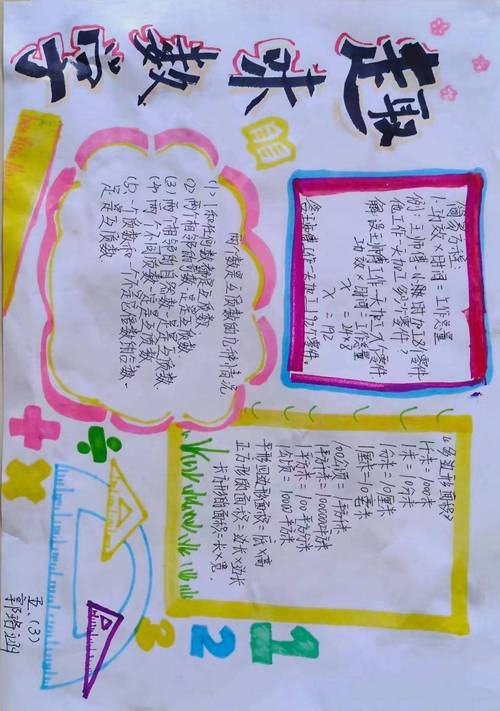 趣味数学
方法:
1.功效×时间=工作总量
例:王师傅一小时加工8个零件
他工作一天加工多少个零件?
解:设王师傅工作一天加工X个零件
功效×时间=工作总量
X=24×8
X=192
答:王师傅工作一天加工192个零件.
两个数是互质数的几种情况
(1)、1和任何数都是互质数
(2)两个相邻的奇数一定是互质数
(3)两个相邻的自然数一定是互质数.
(4)两个不同质数一定是互质数
(5)、一个质数和一个不是它倍数的合数.
是互质数
《多边形面积》
1米=10分米
1分米=10厘米
1厘米=10毫米
100公顷=1平方千米
1平方千米=1000000平方米
1平方米=100平方分米
1公顷=10000平方米
平行四边形面积=底×高
正方形的面积=边长×边长
长方形的面积=长×宽.
1
2
3
五、(3)